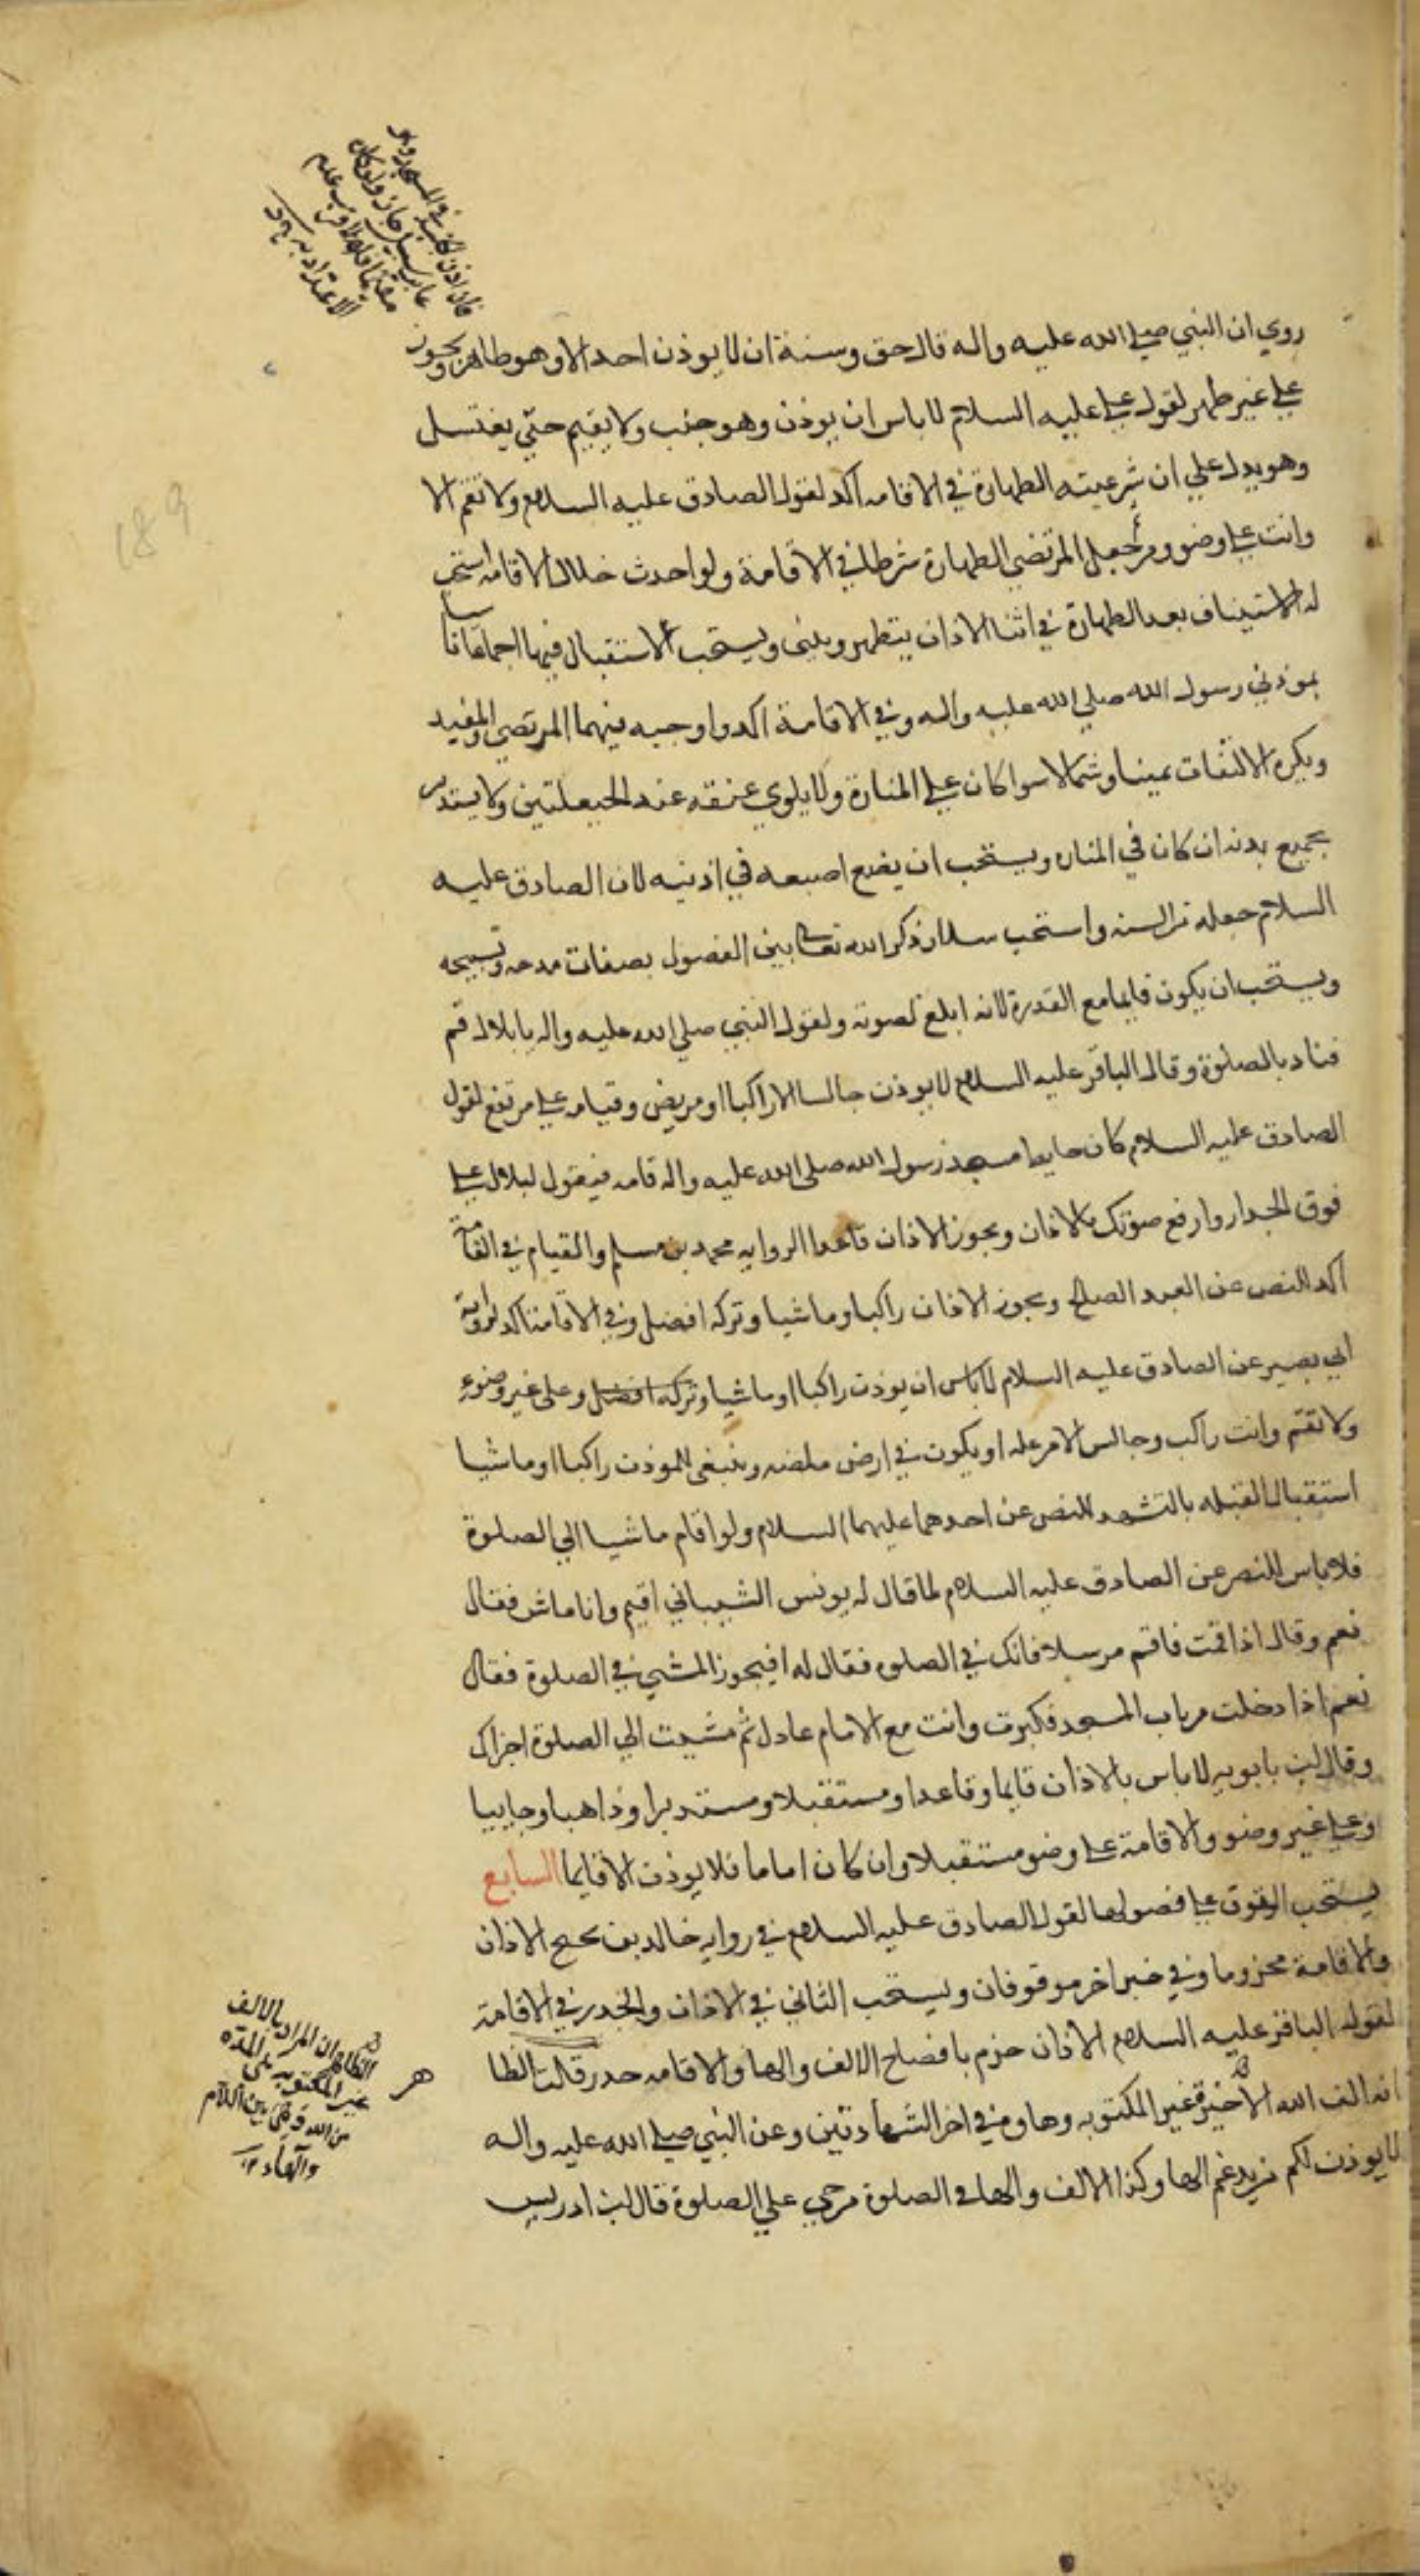 روي ان النبي صلي الله عليه واله قال حق وسنة ان لا يوذن احد الا وهو طاهر ويجوز
علي غير طهر لقول علي عليه السلام لا باس ان يوذن وهو جنب ولا يقيم حتي يغتسل
وهو يدل علي ان شرعيته الطهارة في الاقامه اكد لقول الصادق عليه السلام ولا تقم الا
وانت علي وضوء وجعل المرتضي الطهارة شرطا في الاقامة ولو احدث خلال الاقامه استحب
له الاستيناف بعد الطهارة في اثنا الاذان يتطهر ويبني ويستحب الاستقبال فيهما اجماعا تاسيا
بموذني رسول الله صلي الله عليه واله وفي الاقامة اكد واوجبه فيهما المرتضي والمفيد
ويكره الالتفات يمينا وشمالا سوا كان علي المنارة ولا يلوي عنقه عند الحيعلتين ولا يستدير
بجميع بدنه ان كان في المناره ويستحب ان يضع اصبعه في اذنيه لان الصادق عليه
السلام جعله من السنه واستحب سلار ذكر الله تعالي بين الفصول بصفات مدحه وتسبيحه
ويستحب ان يكون قايما مع القدرة لانه ابلغ لصوته ولقول النبي صلي الله عليه واله يا بلال قم
فناد بالصلوة وقال الباقر عليه السلام لا يوذن جالسا الا راكبا او مريض وقيامه علي مرتفع لقول
الصادق عليه السلام كان حايط مسجد رسول الله صلي الله عليه واله قامه فيقول لبلال علي
فوق الجدار وارفع صوتك بالاذان ويجوز الاذان قاعدا الروايه محمد بن مسلم والقيام في القامة
اكد للنص عن العبد الصالح ويجوز الاذان راكبا وماشيا وتركه افضل وفي الاقامة اكد لرواية
ابي بصير عن الصادق عليه السلام لا باس ان يوذن راكبا او ماشيا وتركه افضل وعلي غير وضوء
ولا تقم وانت راكب وجالس الا من عله او يكون في ارض ملصه وينبغي للموذن راكبا او ماشيا
استقبال القبله بالتشهد للنص عن احدهما عليهما السلام ولو اقام ماشيا الي الصلوة
فلا باس للنص عن الصادق عليه السلام لما قال له يونس الشيباني اقيم وانا ماش فقال
نعم وقال اذا اقمت فاقم مرسلا فانك في الصلوه فقال له افيجوز المشي في الصلوة فقال
نعم اذا دخلت من باب المسجد فكبرت وانت مع الامام عادل ثم مشيت الي الصلوة اجزاك
وقال ابن بابويه لا باس بالاذان قايما وقاعدا ومستقبلا ومستدبرا وذاهبا وجاييا
وعلي غير وضو والاقامة علي وضو مستقبلا وان كان اماما فلا يوذن الا قايما السابع
يستحب الوقوف علي فصولها لقول الصادق عليه السلام في روايه خالد بن نجيح الاذان
والاقامة مجزوما وفي خبر اخر موقوفان ويستحب التاني في الاذان والحدر في الاقامة
لقول الباقر عليه السلام الاذان جزم بافصاح الالف والها والاقامه حدر قلت الظا
انه الف الله الاخيرة غير المكتوبه وهاوه في اخر الشهادتين وعن النبي صلي الله عليه واله
لا يوذن لكم من يدغم الها وكذا الالف والها في الصلوة من حي علي الصلوة قال ابن ادريس
الظاهر ان المراد بالالف
غير المكتوبه هي المده
من الله وهي بين اللام
والهاء ١٢